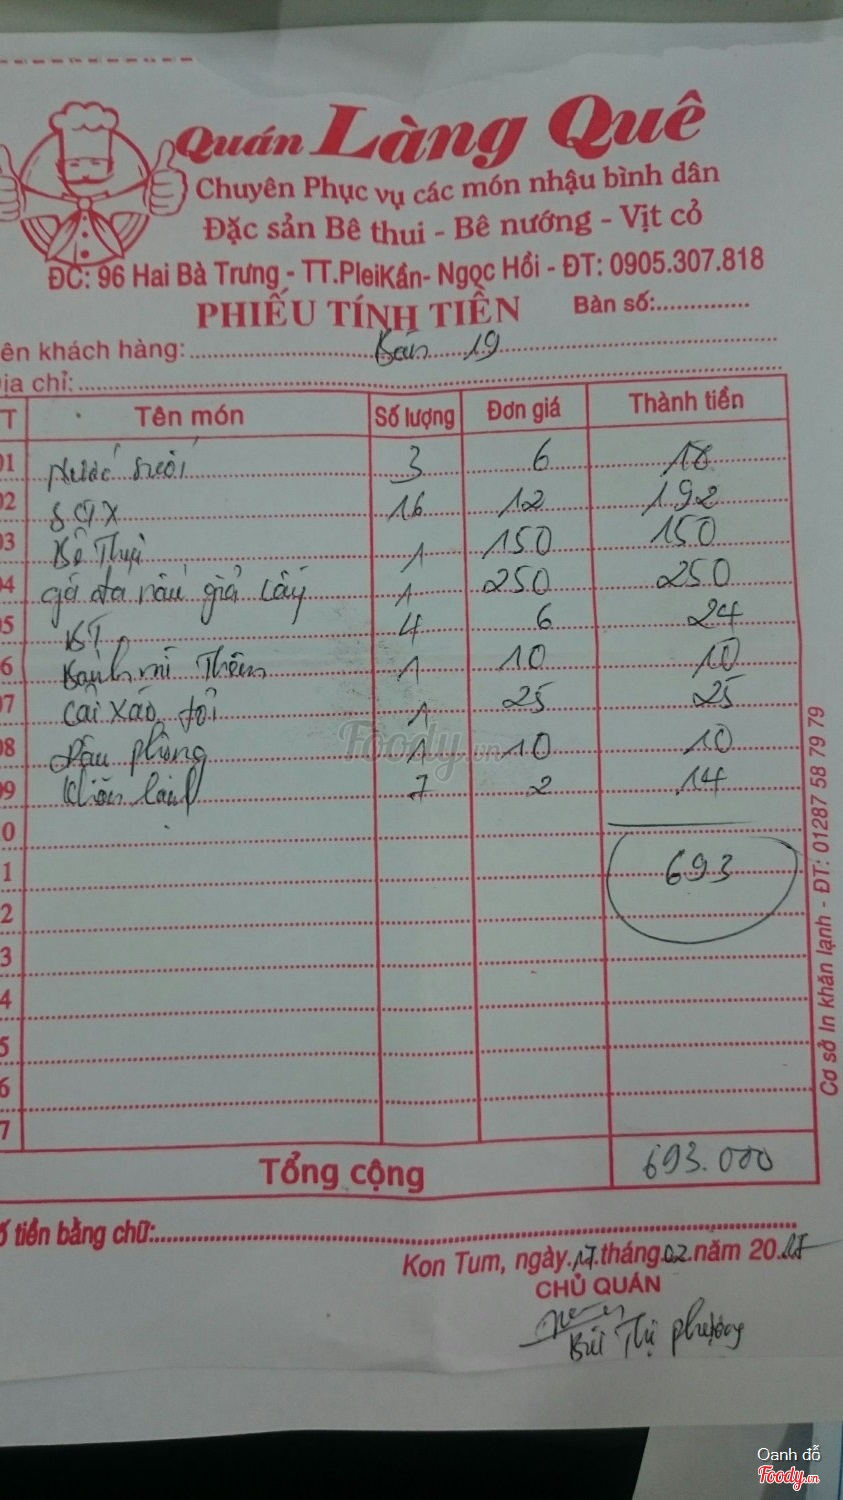 Quán Làng Quê
Chuyên Phục vụ các món nhậu bình dân
Đặc sản Bê thui - Bê nướng - Vịt cỏ
ĐC: 96 Hai Bà Trưng - TT.PleiKần- Ngọc Hồi - ĐT: 0905.307.818
PHIẾU TÍNH TIỀN Bàn số:
ên khách hàng: Bàn 19
ịa chỉ:
T Tên món Số lượng Đơn giá Thành tiền
01 Nước suối 3 6 18
02 SGX 16 12 192
03 Bê Thui 1 150 150
04 gà ta nấu giả cầy 1 250 250
05 KT 4 6 24
06 Bánh mì Thêm 1 10 10
07 Cải xào tỏi 1 25 25
08 Đậu phộng 1 10 10
09 Khăn lạnh 7 2 14
0
1 693
2
3
4
5
6
7
Tổng cộng 693.000
ố tiền bằng chữ:
Kon Tum, ngày 17 tháng 02 năm 2017
CHỦ QUÁN
Bùi Thị Phượng
Cơ sở In khăn lạnh - ĐT: 01287 58 79 79
Foody.vn
Oanh đỗ
Foody.vn